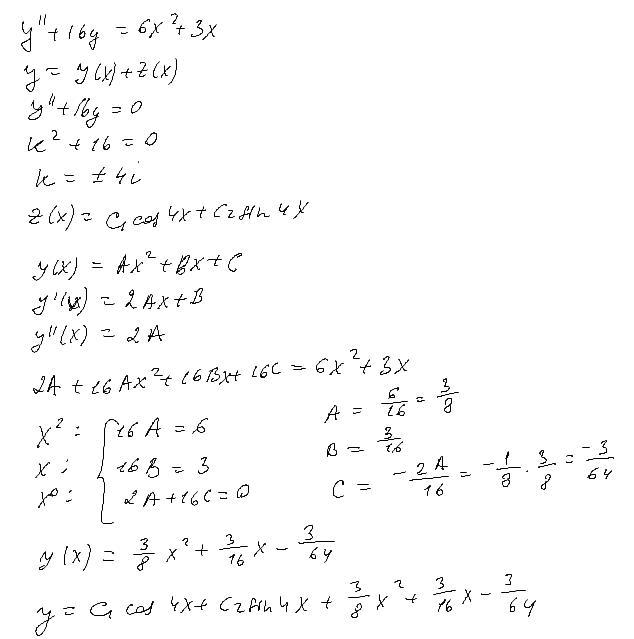 y'' + 16y = 6x² + 3x
y = y(x) + z(x)
y'' + 16y = 0
k² + 16 = 0
k = ± 4i
z(x) = C₁ cos 4x + C₂ sin 4x
y(x) = Ax² + Bx + C
y'(x) = 2Ax + B
y''(x) = 2A
2A + 16Ax² + 16Bx + 16C = 6x² + 3x
x² : { 16A = 6 A = 6/16 = 3/8
x : 16B = 3 B = 3/16
x⁰ : 2A + 16C = 0 C = -2A/16 = -1/8 · 3/8 = -3/64
y(x) = 3/8 x² + 3/16 x - 3/64
y = C₁ cos 4x + C₂ sin 4x + 3/8 x² + 3/16 x - 3/64